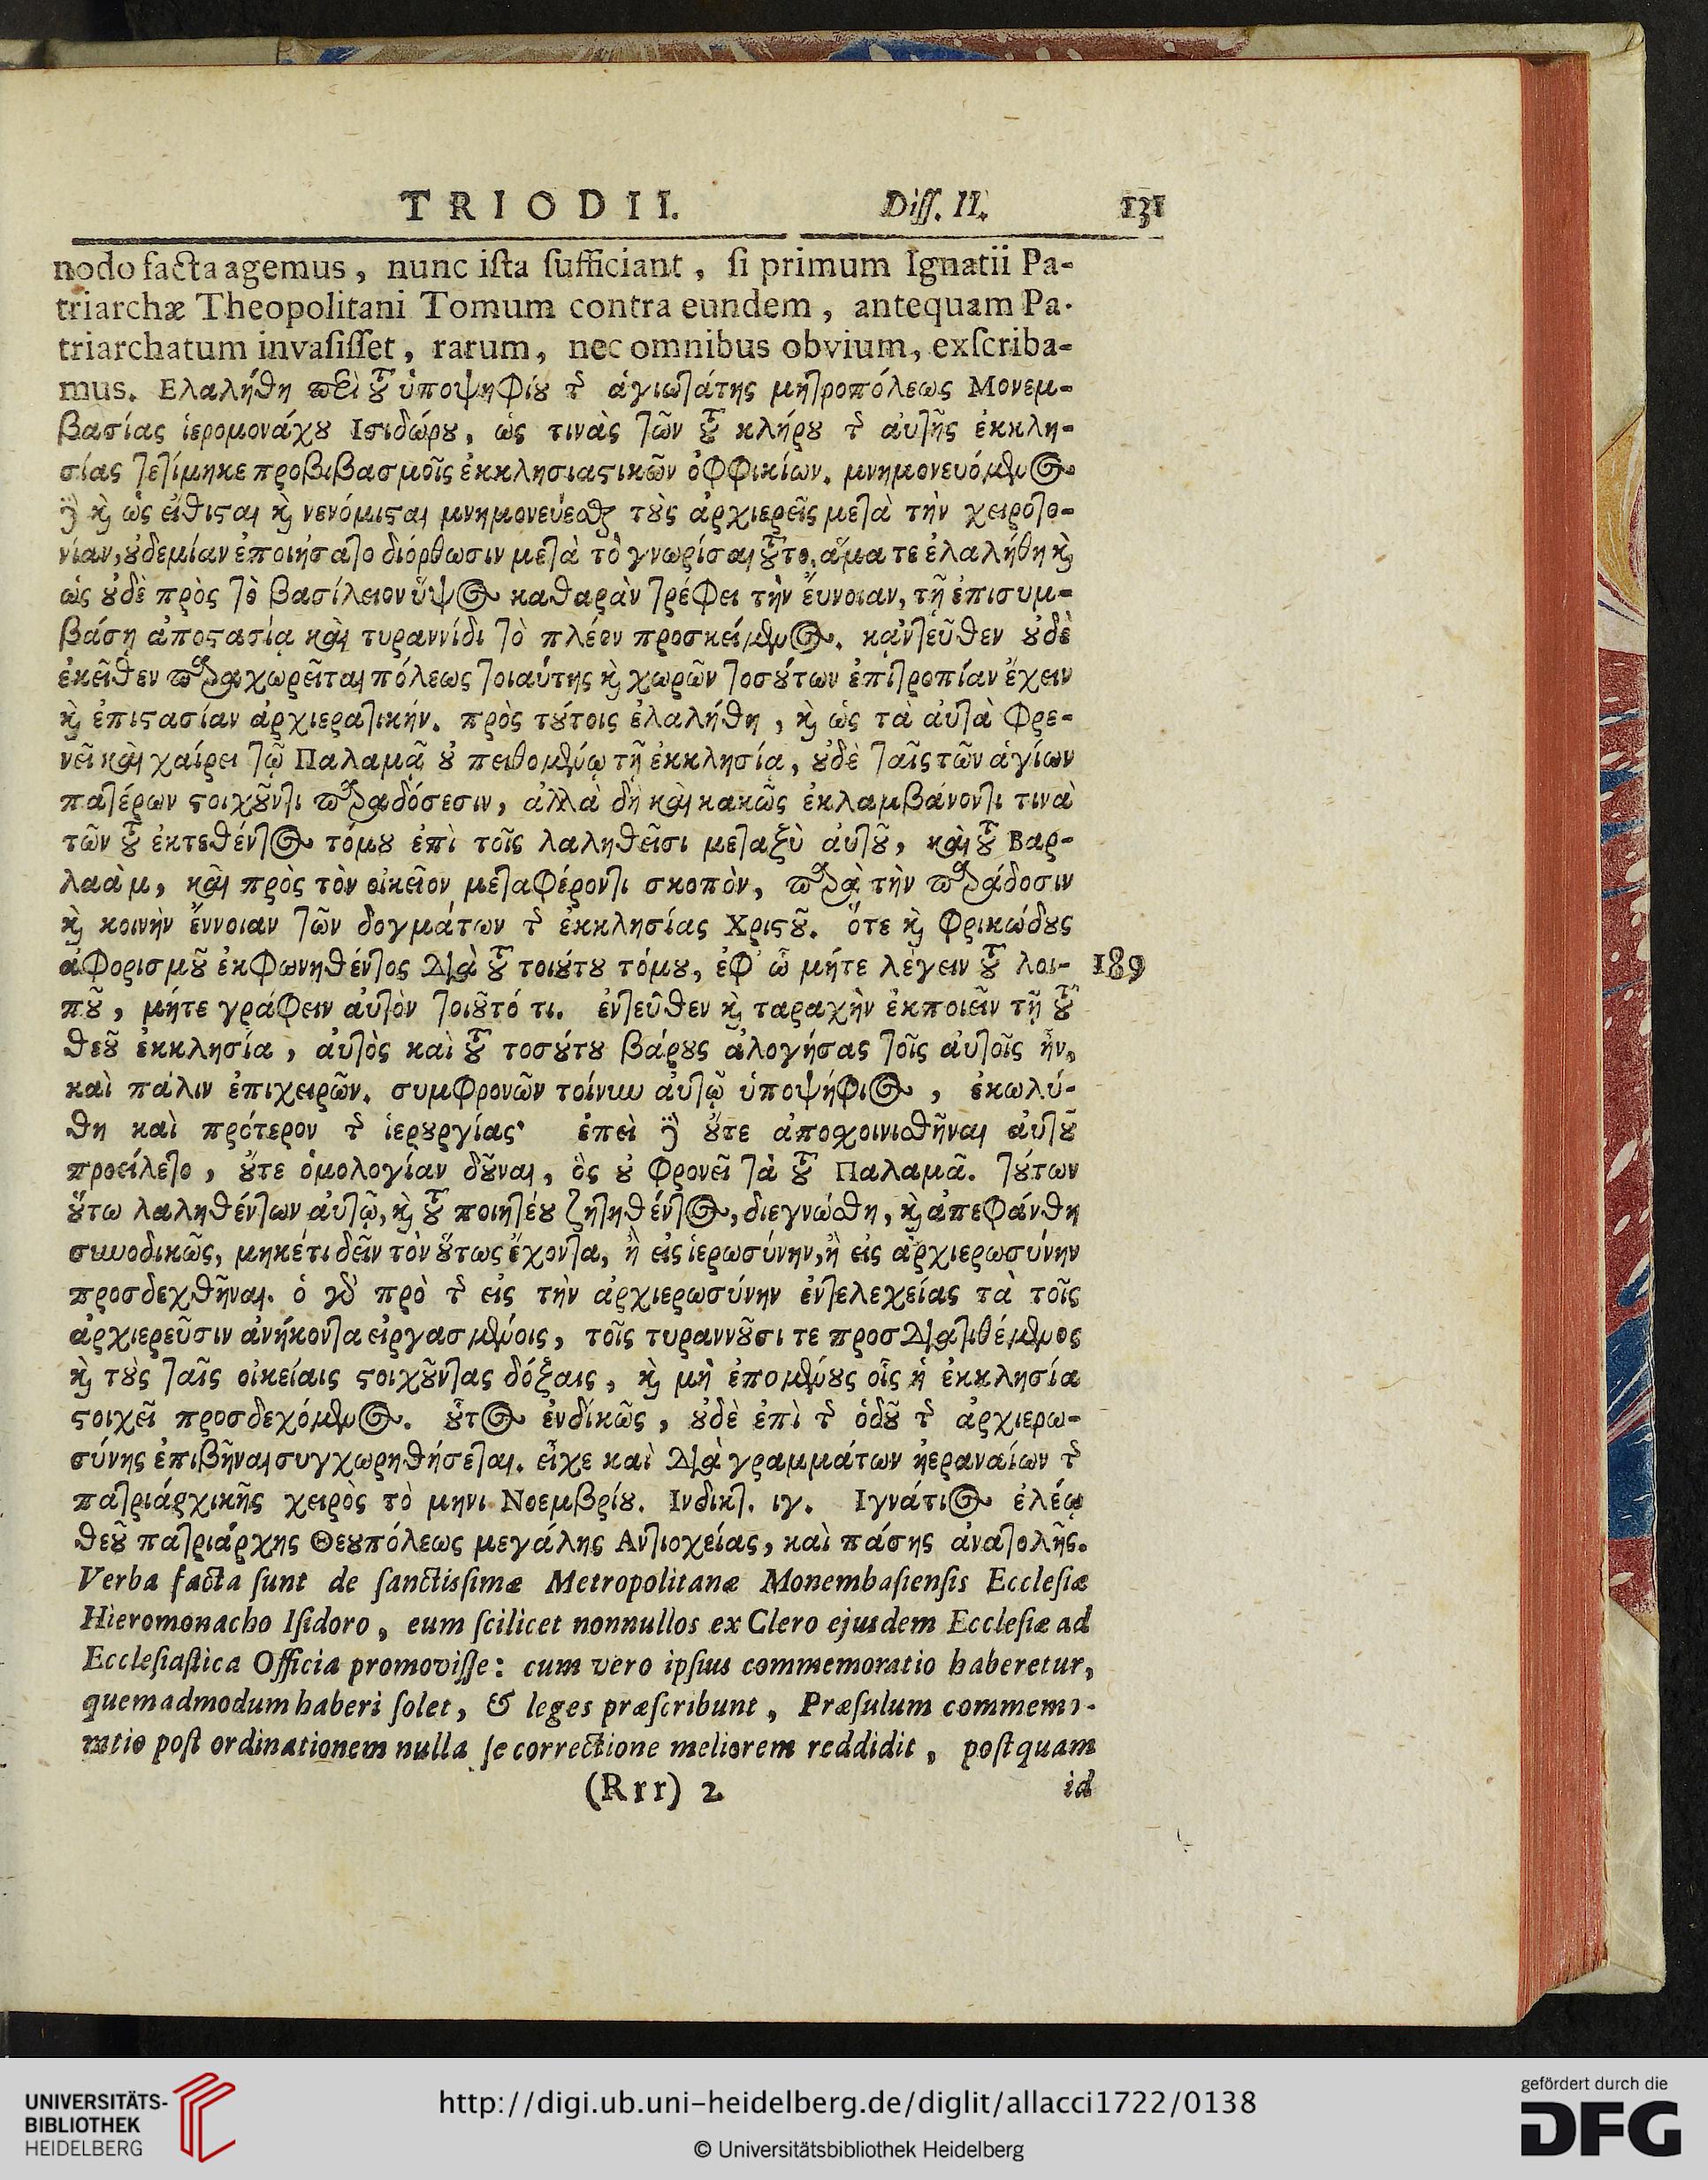 TRIODII. Diſſ. II. 131
nodo facta agemus, nunc iſta ſufficiant, ſi primum Ignatii Pa-
triarchæ Theopolitani Tomum contra eundem, antequam Pa-
triarchatum invaſiſſet, rarum, nec omnibus obvium, exſcriba-
mus. Ελαλήθη περὶ τȣ͂ ὑποψηφίȣ τῆς ἁγιωτάτης μητροπόλεως Μονεμ-
βασίας ἱερομονάχȣ Ισιδώρȣ, ὡς τινὰς τῶν τȣ͂ κλήρȣ τῆς αὐτῆς ἐκκλη-
σίας τετίμηκε προβιβασμοῖς ἐκκλησιαςικῶν ὀφφικίων. μνημονευόμενος
δὲ ϗ ὡς εἴθιςαι ϗ νενόμιςαι μνημονεύεσθαι τȣ̀ς ἀρχιερεῖς μετὰ τὴν χειροτο-
νίαν, ȣ̓δεμίαν ἐποιήσατο διόρθωσιν μετὰ τὸ γνωρίσαι τȣ͂το, ἅμα τε ἐλαλήθη ϗ
ὡς ȣ̓δὲ πρὸς τὸ βασίλειον ὕψος καθαρὰν τρέφει τὴν ἔυνοιαν, τῇ ἐπισυμ-
βάσῃ ἀποςασίᾳ καὶ τυραννίδι τὸ πλέον προσκείμενος. κᾀντεῦθεν ȣ̓δὲ
ἐκεῖθεν παραχωρεῖται πόλεως τοιαύτης ϗ χωρῶν τοσȣ́των ἐπιτροπίαν ἔχειν
ϗ ἐπιςασίαν ἀρχιερατικήν. πρὸς τȣ́τοις ἐλαλήθη, ϗ ὡς τὰ αὐτὰ φρο-
νεῖ καὶ χαίρει τῷ Παλαμᾷ ȣ̓ πειθομένῳ τῇ ἐκκλησίᾳ, ȣ̓δὲ ταῖς τῶν ἁγίων
πατέρων ςοιχȣ͂ντι παραδόσεσιν, ἀλλὰ δὴ καὶ κακῶς ἐκλαμβάνοντι τινὰ
τῶν τȣ͂ ἐκτεθέντος τόμȣ ἐπὶ τοῖς λαληθεῖσι μεταξὺ αὐτȣ͂, καὶ τȣ͂ Βαρ-
λαὰμ, καὶ πρὸς τὸν οἰκεῖον μεταφέροντι σκοπὸν, παρὰ τὴν παράδοσιν
ϗ κοινὴν ἔννοιαν τῶν δογμάτων τῆς ἐκκλησίας Χριςȣ͂. ὅτε ϗ φρικώδȣς
ἀφορισμȣ͂ ἐκφωνηθέντος διὰ τȣ͂ τοιȣ́τȣ τόμȣ, ἐφ' ᾧ μήτε λέγειν τȣ͂ λοι- 189
πȣ͂, μήτε γράφειν αὐτὸν τοιȣ͂τό τι. ἐντεῦθεν ϗ ταραχὴν ἐκποιεῖν τῇ τȣ͂
θεȣ͂ ἐκκλησίᾳ, αὐτὸς καὶ τȣ͂ τοσȣ́τȣ βάρȣς ἀλογήσας τοῖς αὐτοῖς ἦν,
καὶ πάλιν ἐπιχειρῶν. συμφρονῶν τοίνυν αὐτῷ ὑποψήφιος, ἐκωλύ-
θη καὶ πρότερον τῆς ἱερȣργίας· ἐπεὶ δὲ ȣ̓́τε ἀποσχοινισθῆναι αὐτȣ͂
προείλετο, ȣ̓́τε ὁμολογίαν δȣ͂ναι, ὃς ȣ̓ φρονεῖ τὰ τȣ͂ Παλαμᾶ. τȣ́των
ȣ̔́τω λαληθέντων αὐτῷ, ϗ τȣ͂ ποιητέȣ ζητηθέντος, διεγνώσθη, ϗ ἀπεφάνθη
συνοδικῶς, μηκέτι δεῖν τὸν ȣ̔́τως ἔχοντα, ἢ εἰς ἱερωσύνην, ἢ εἰς ἀρχιερωσύνην
προσδεχθῆναι. ὁ γὰρ πρὸ τῆς εἰς τὴν ἀρχιερωσύνην ἐντελεχείας τὰ τοῖς
ἀρχιερεῦσιν ἀνήκοντα εἰργασμένοις, τοῖς τυραννȣ͂σι τε προσδιατιθέμενος
ϗ τȣ̀ς ταῖς οἰκείαις ςοιχȣ͂ντας δόξαις, ϗ μὴ ἑπομένȣς οἷς ἡ ἐκκλησία
ςοιχεῖ προσδεχόμενος. ȣ̓͂τος ἐνδίκως, ȣ̓δὲ ἐπὶ τῆς ὁδȣ͂ τῆς ἀρχιερω-
σύνης ἐπιβῆναι συγχωρηθήσεται. εἶχε καὶ διὰ γραμμάτων ἠεραναίων τῆς
πατριάρχικῆς χειρὸς τὸ μηνι Νοεμβρίȣ. Ινδικτ. ιγ. Ιγνάτιος ἐλέῳ
θεȣ͂ πατριάρχης Θεȣπόλεως μεγάλης Αντιοχείας, καὶ πάσης ἀνατολῆς.
Verba facta ſunt de ſanctiſſimæ Metropolitanæ Monembaſienſis Eccleſiæ
Hieromonacho Iſidoro, eum ſcilicet nonnullos ex Clero ejuſdem Eccleſiæ ad
Eccleſiaſtica Officia promoviſſe: cum vero ipſius commemoratio haberetur,
quemadmodum haberi ſolet, & leges præſcribunt, Præſulum commemo-
ratio poſt ordinationem nulla ſe correctione meliorem reddidit, poſtquam
(Rrr) 2 id
UNIVERSITÄTS-
BIBLIOTHEK
HEIDELBERG
http://digi.ub.uni-heidelberg.de/diglit/allacci1722/0138
© Universitätsbibliothek Heidelberg
gefördert durch die
DFG